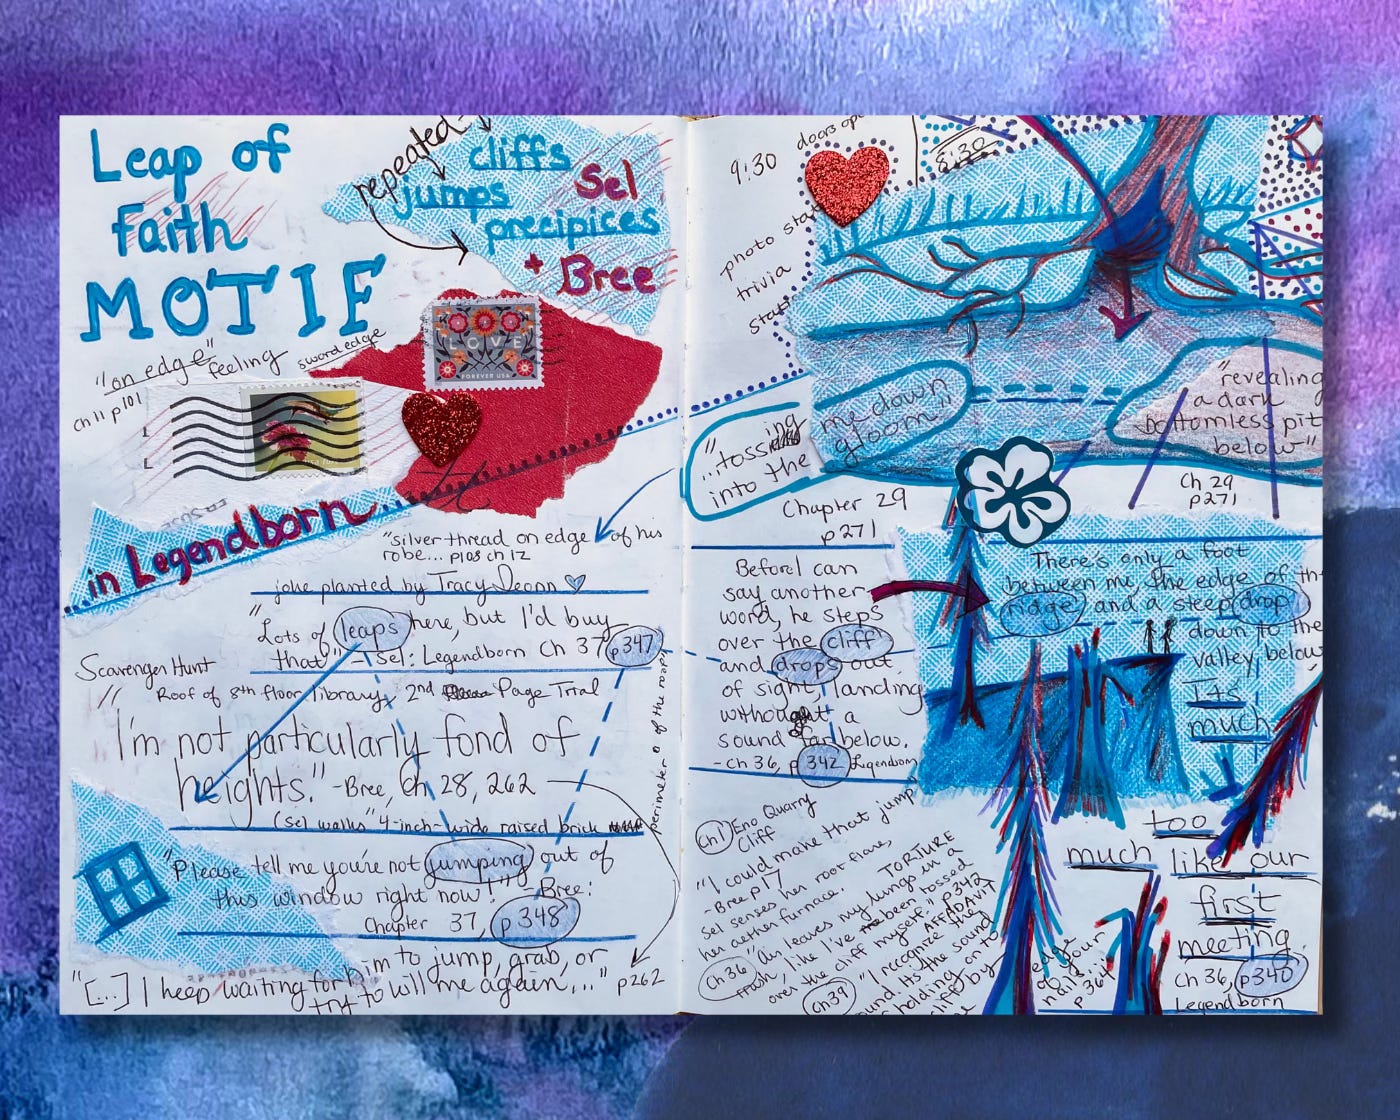 Leap of
Faith
MOTIF
repeated
cliffs
jumps
precipices
Sel
+ Bree
"on edge" feeling
sword edge
ch 11 p101
LOVE
FOREVER USA
in Legendborn
"silver thread on edge of his
robe... p108 ch 12
joke planted by Tracy Deonn
"Lots of leaps here, but I'd buy
that" - Sel: Legendborn Ch 37 p347
Scavenger Hunt
Roof of 8th floor library, 2nd Page Trial
"I'm not particularly fond of
heights." -Bree, Ch 28, 262
(Sel walks "4-inch-wide raised brick
perimeter of the roof)
"Please tell me you're not jumping out of
this window right now!" - Bree:
Chapter 37, p348
"[...] I keep waiting for him to jump, grab, or
try to will me again,..." p262
9:30
doors ope
8:30
photo stat
trivia
start
"...tossing me down
into the gloom"
Chapter 29
p271
"revealing
a dark
bottomless pit
below"
Ch 29
p271
Before I can
say another
word, he steps
over the cliff
and drops out
of sight, landing
without a
sound far below.
- ch 36, p 342 Legendborn
There's only a foot
between me, the edge of th
ridge, and a steep drop
down to the
valley below
It's
much
too
much like our
first
meeting.
Ch 36, p340
Legendborn
Ch1 Eno Quarry
Cliff
"I could make that jump
- Bree p17
Sel senses her root flare,
her aether furnace.
TORTURE
Ch 36 "Air leaves my lungs in a
rush, like I've been tossed
over the cliff myself." p342
Ch 39 "I recognize the
sound. It's the sound
holding on to
cliff by
edge
of your
nails"